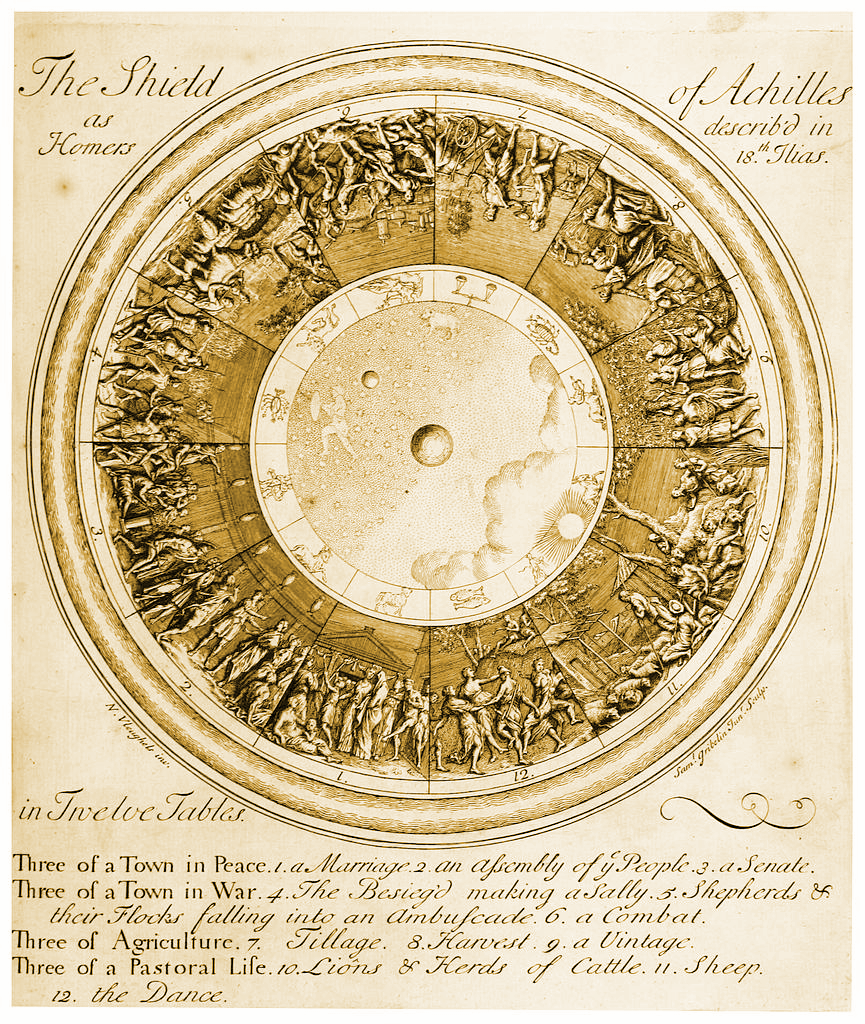 The Shield
as
Homers
of Achilles
describ'd in
18.th Ilias.
1.
2.
3.
4.
5.
6.
7.
8.
9.
10.
11.
12.
N. Vleughels inv.
Sam.l Gribelin Jun.r Sculp.
in Twelve Tables.
Three of a Town in Peace. 1. a Marriage. 2. an assembly of yͤ People. 3. a Senate.
Three of a Town in War. 4. The Besieg'd making a Sally. 5. Shepherds &
their Flocks falling into an Ambuscade. 6. a Combat.
Three of Agriculture. 7. Tillage. 8. Harvest. 9. a Vintage.
Three of a Pastoral Life. 10. Lions & Herds of Cattle. 11. Sheep.
12. the Dance.